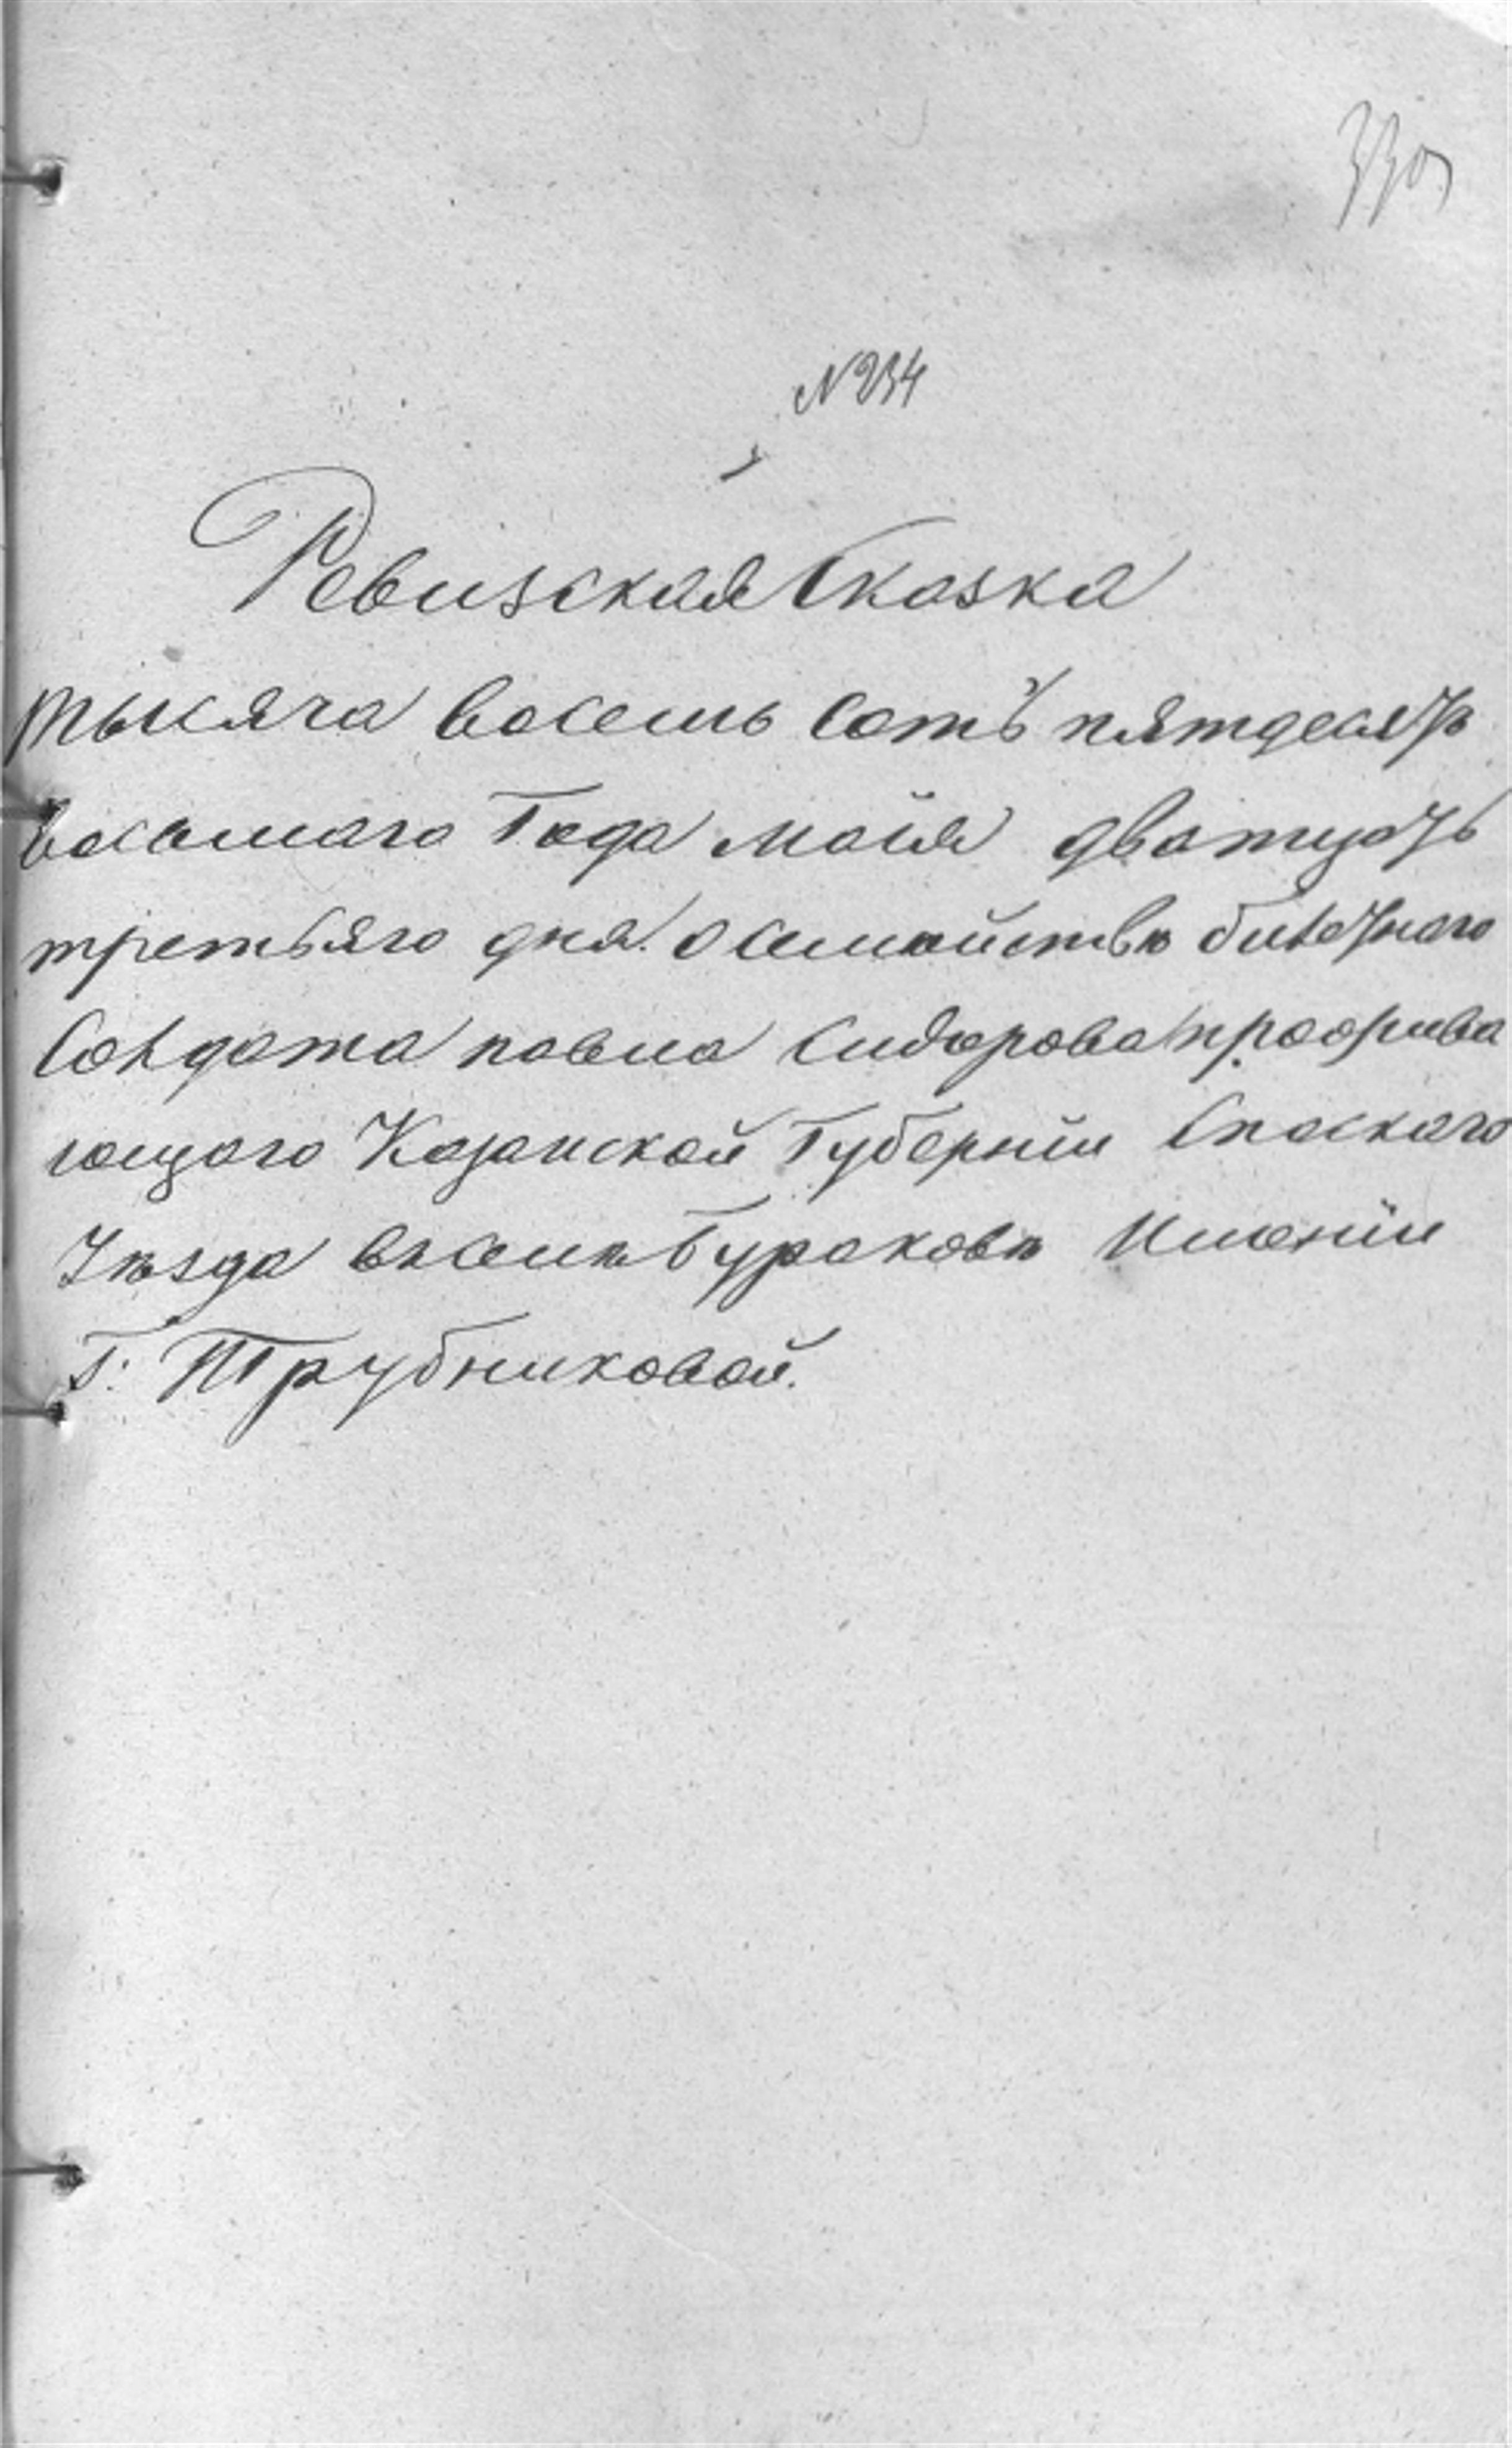 330
N 234
Ревизская Сказка
тысяча восемь сотъ пятдесятъ
восьмаго Года мaія дватцать
третьяго дня. о семействѣ билетнаго
Солдата павла Сидорова прожива
ющаго Казанской Губерніи Спаскаго
Уѣзда въселѣ Бураковѣ Имѣніи
Г: Трубниковой.